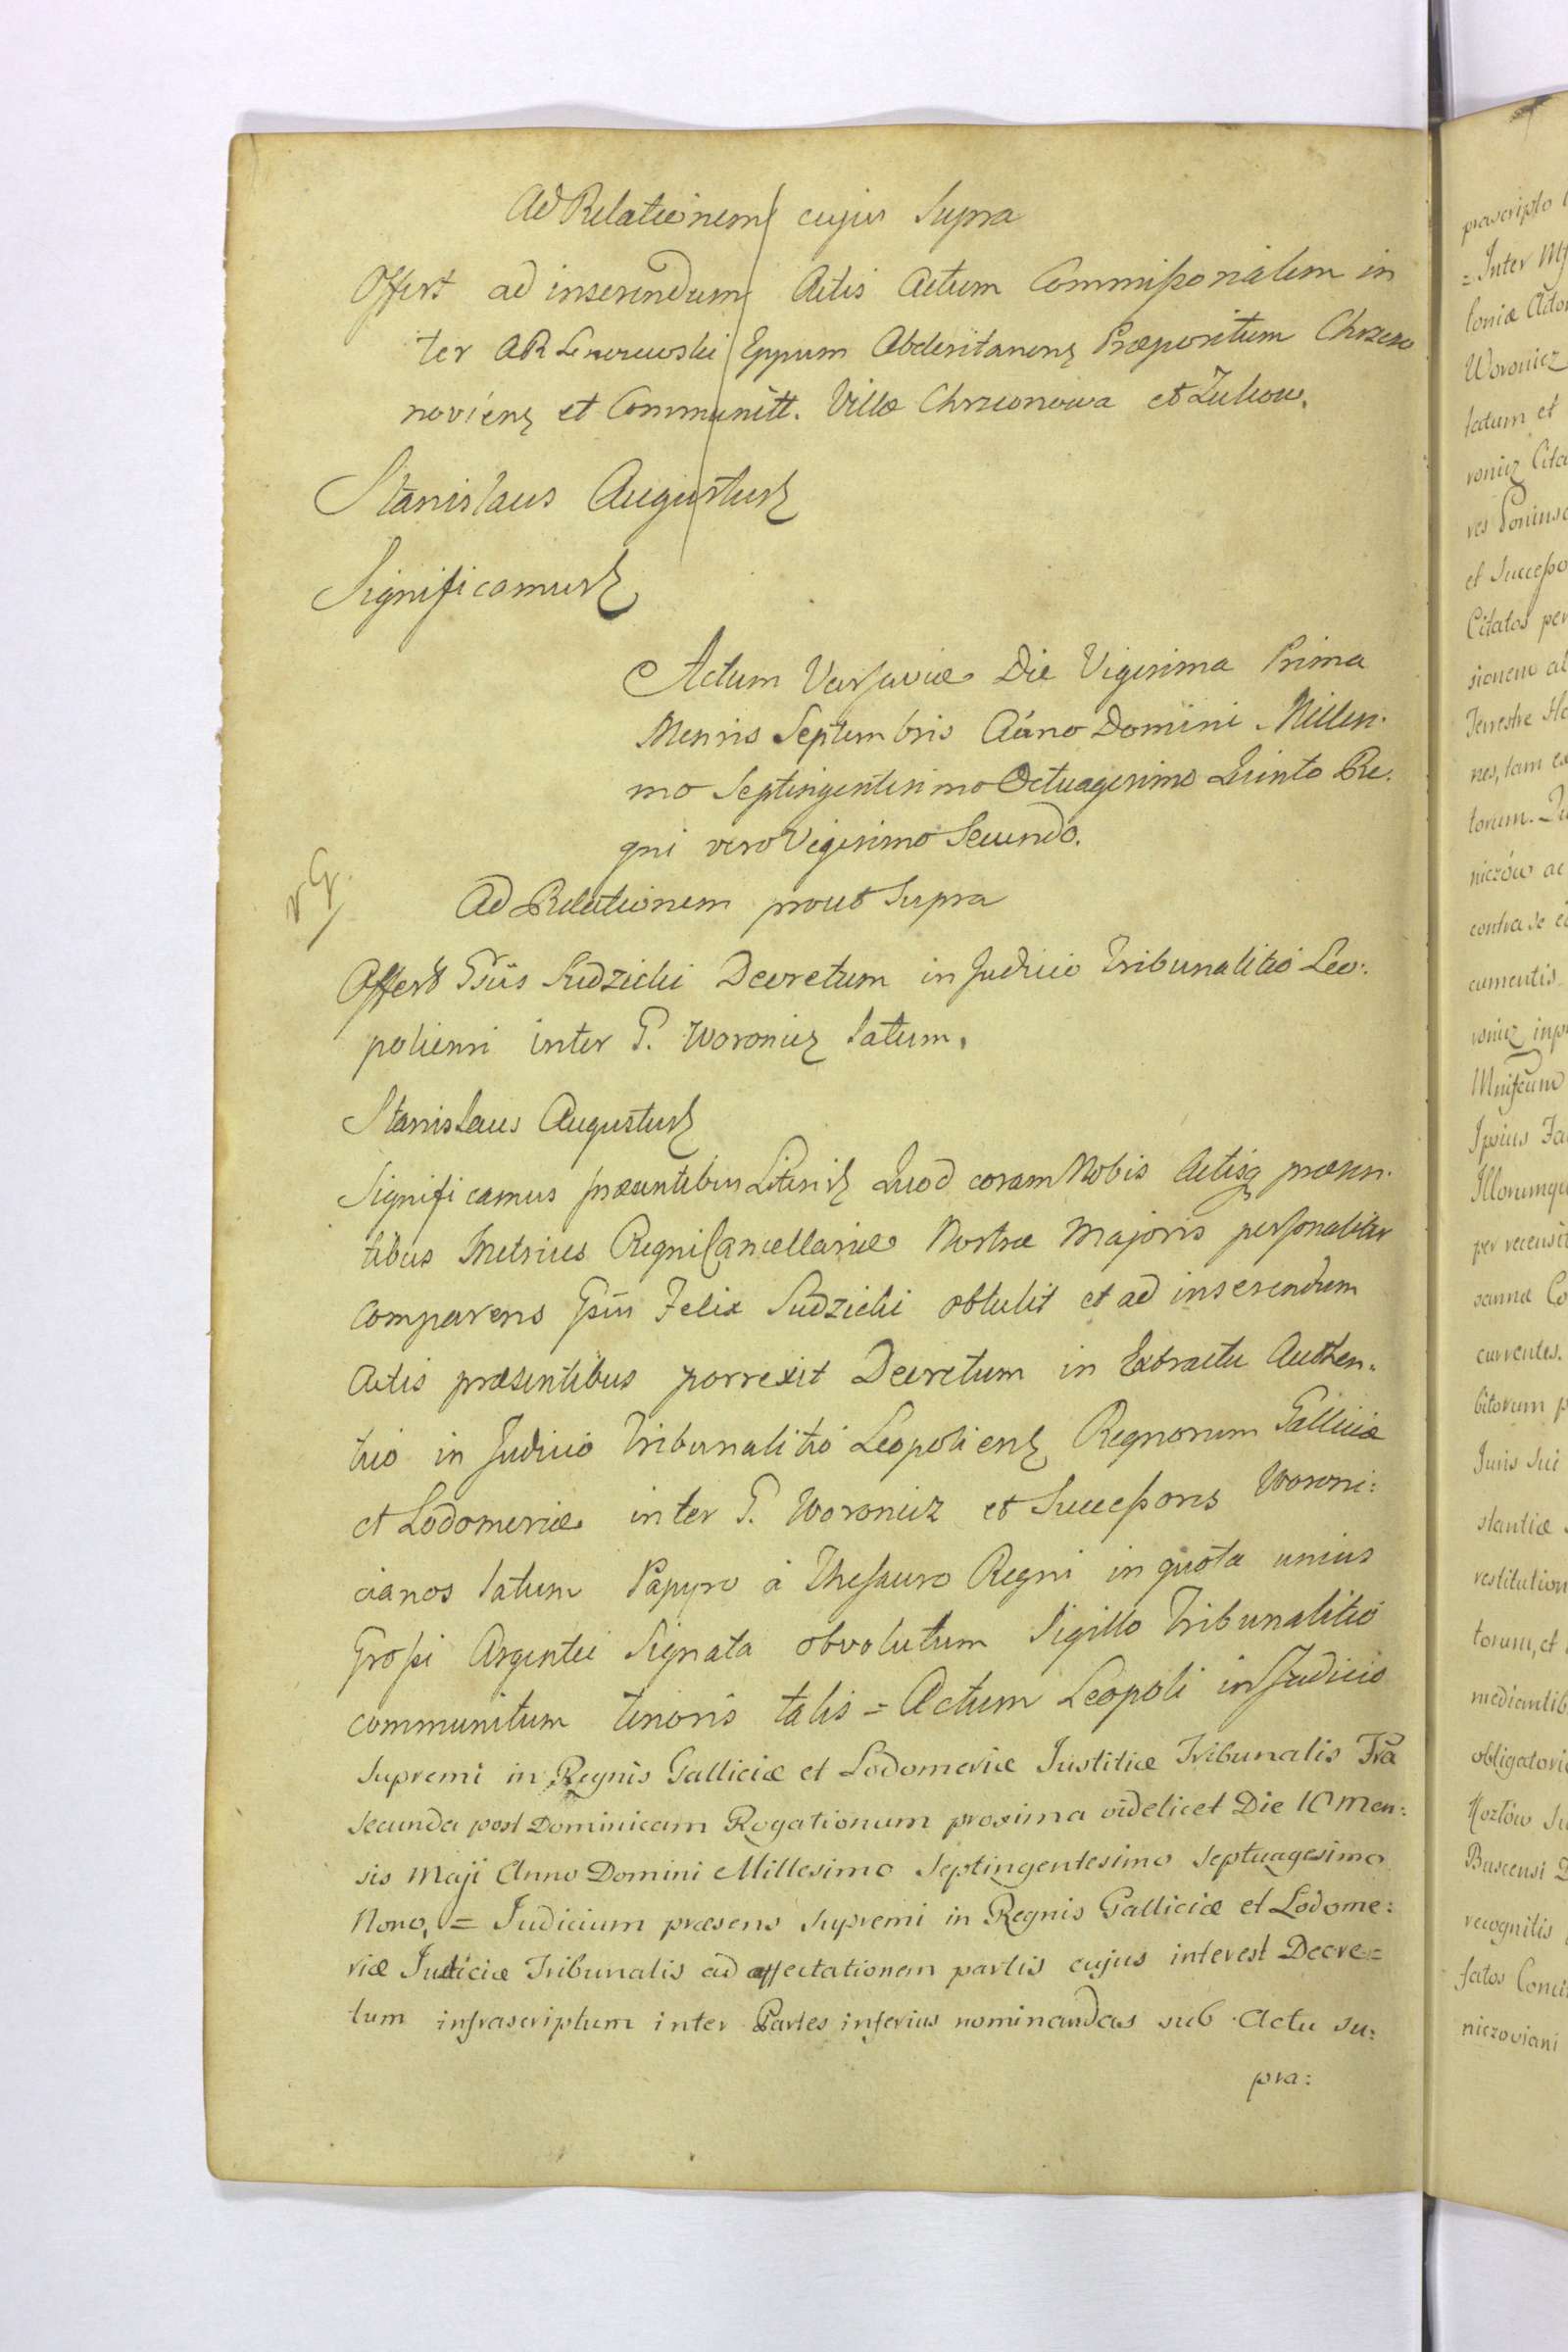 Ad Relationem cujus Supra
Offert ad inserendum Actis Actum Commissorialem in
ter AR Eppum Abderitanens Præpositum Chrzczo
noviens et Communitt. Villæ Chrzconowa et Zukow.
Stanislaus Augustus
Significamus
Actum Varsaviæ Die Vigesima Prima
Mensis Septembris Anno Domini Millesi-
mo Septingentesimo Octuagesimo Quinto Re-
gni vero Vigesimo Secundo.
v G.
Ad Relationem prout Supra
Offert Gsus Sudzicki Decretum in Judicio Tribunalitio Leo:
poliensi inter G. Woronicz latum.
Stanislaus Augustus
Significamus præsentibus Literis Quod coram Nobis Actisq præsen-
tibus Metrices Regni Cancellariæ Nostræ Majoris personaliter
comparens Gsus Felix Sudzicki obtulit et ad inserendum
Actis præsentibus porrexit Decretum in Extractu Authen-
tico in Judicio Tribunalitio Leopoliens Regnorum Galliciæ
et Lodomeriæ inter G. Woronicz et Successores Woroni:
cianos latum Papyro à Thesauro Regni in quota unius
Grossi Argentei Signata obvolutum Sigillo Tribunalitio
communitum tenoris talis = Actum Leopoli in Judicio
Supremi in Regnis Galliciæ et Lodomeriæ Justitiæ Tribunalis Fra
secunda post Dominicam Rogationum proxima videlicet Die 10 Men:
sis Maji Anno Domini Millesimo Septingentesimo Septuagesimo
Nono. = Judicium præsens Supremi in Regnis Galliciæ et Lodome:
riæ Justiciæ Tribunalis ad affectationem partis cujus interest Decre=
tum infrascriptum inter Partes inferius nominandas sub Actu su:
pra:
præscripto
= Inter
loniæ
Woronicz
latum et
ronicz Cita
res Poninsc
et Successo
Citatos per
sionem
Terrestre
nes, tam
torum.
niczów ac
contra se
cumentis
ronicz
Ipsius
Illorumqu
per recensit
currentes.
bitorum p
Juris sui
stantiæ
restitution
torum, et
mediantib
obligatori
Kozlów
Buscensi
recognitis
niczoviani